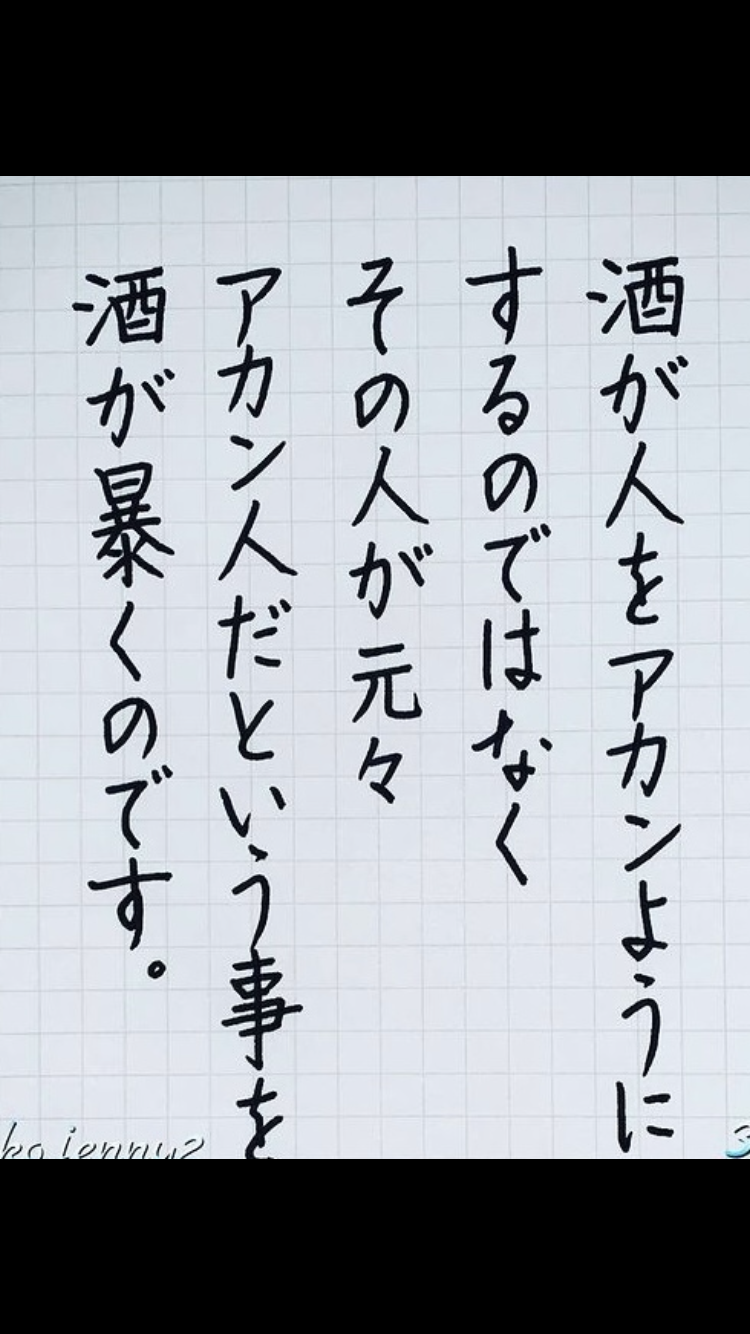 酒が人をアカンように
するのではなく
その人が元々
アカン人だという事を
酒が暴くのです。